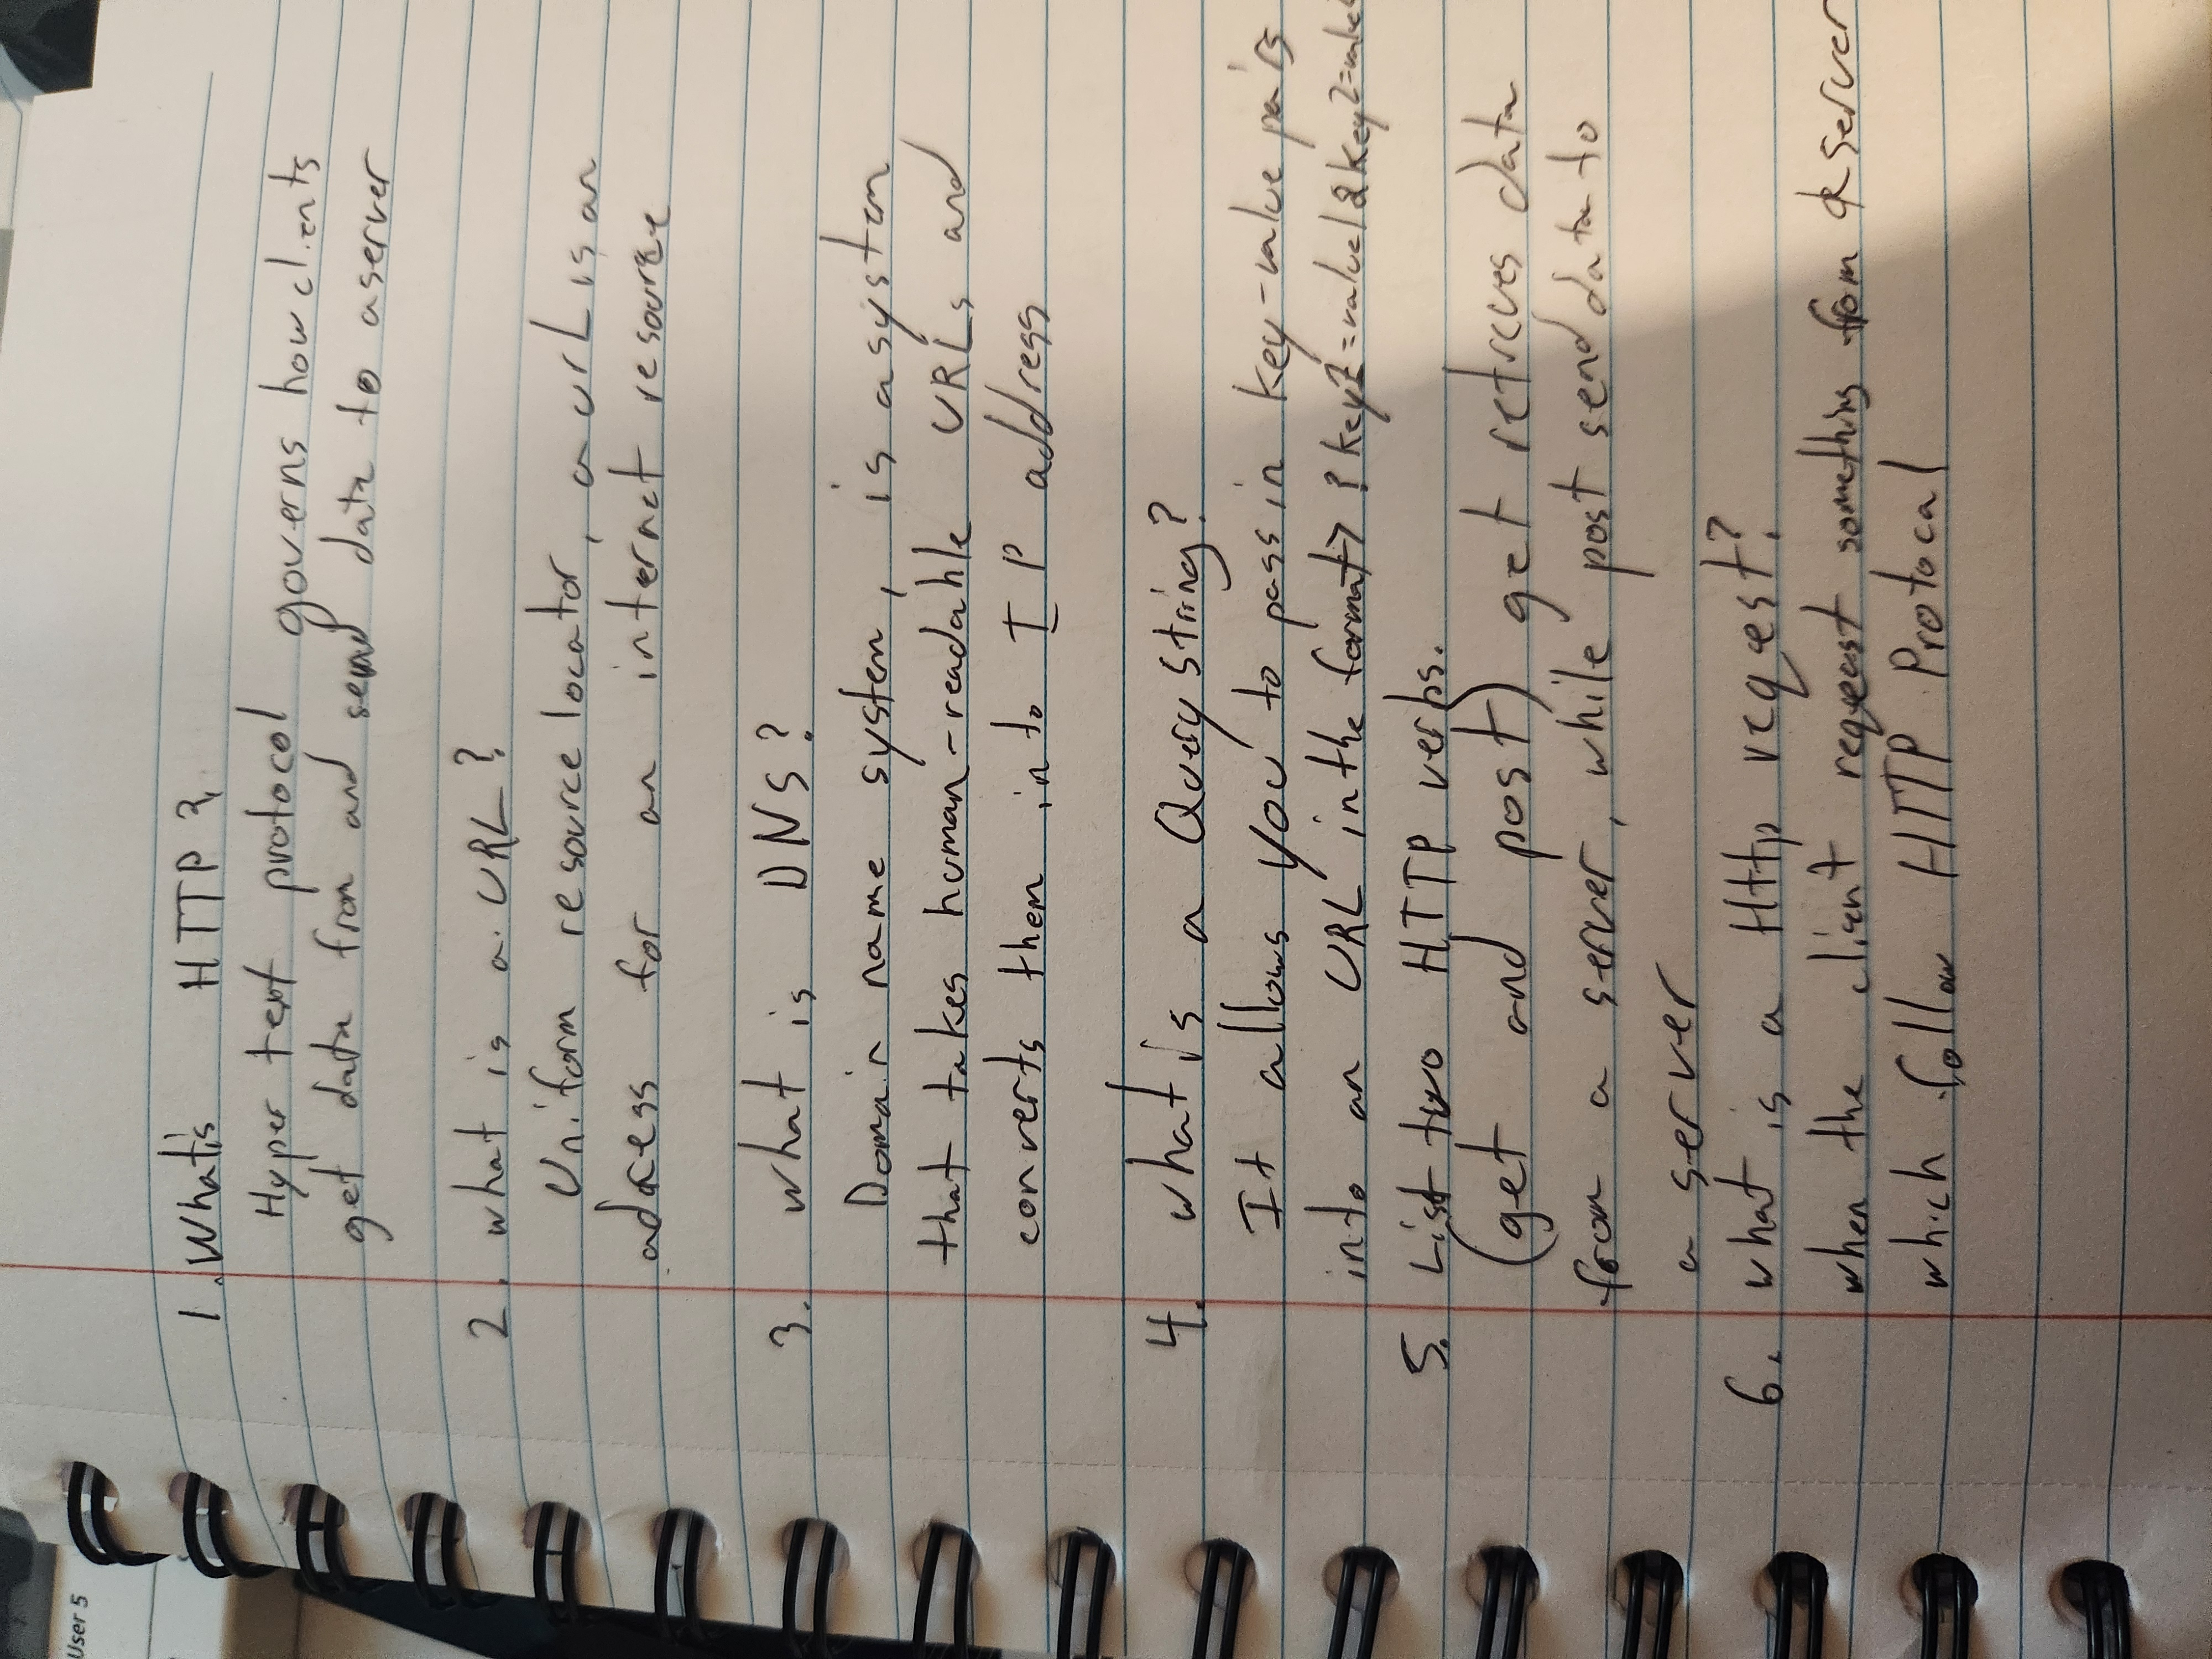 User 5
1. What's HTTP?
Hyper text protocol governs how clients
get data from and send data to a server
2. what is a URL?
Uniform resource locator, a urL is an
address for an internet resource
3. what is DNS?
Domain name system, is a system
that takes human-readable URLs and
converts them into IP address
4. what is a Query String?
It allows you to pass in key-value pairs
into an URL in the format> ?key1=value1&key2=value
5. List two HTTP verbs.
(get and post) get retrieves data
from a server, while post send data to
a server
6. what is a Http request?
when the client request something from a server
which follow HTTP Protocal